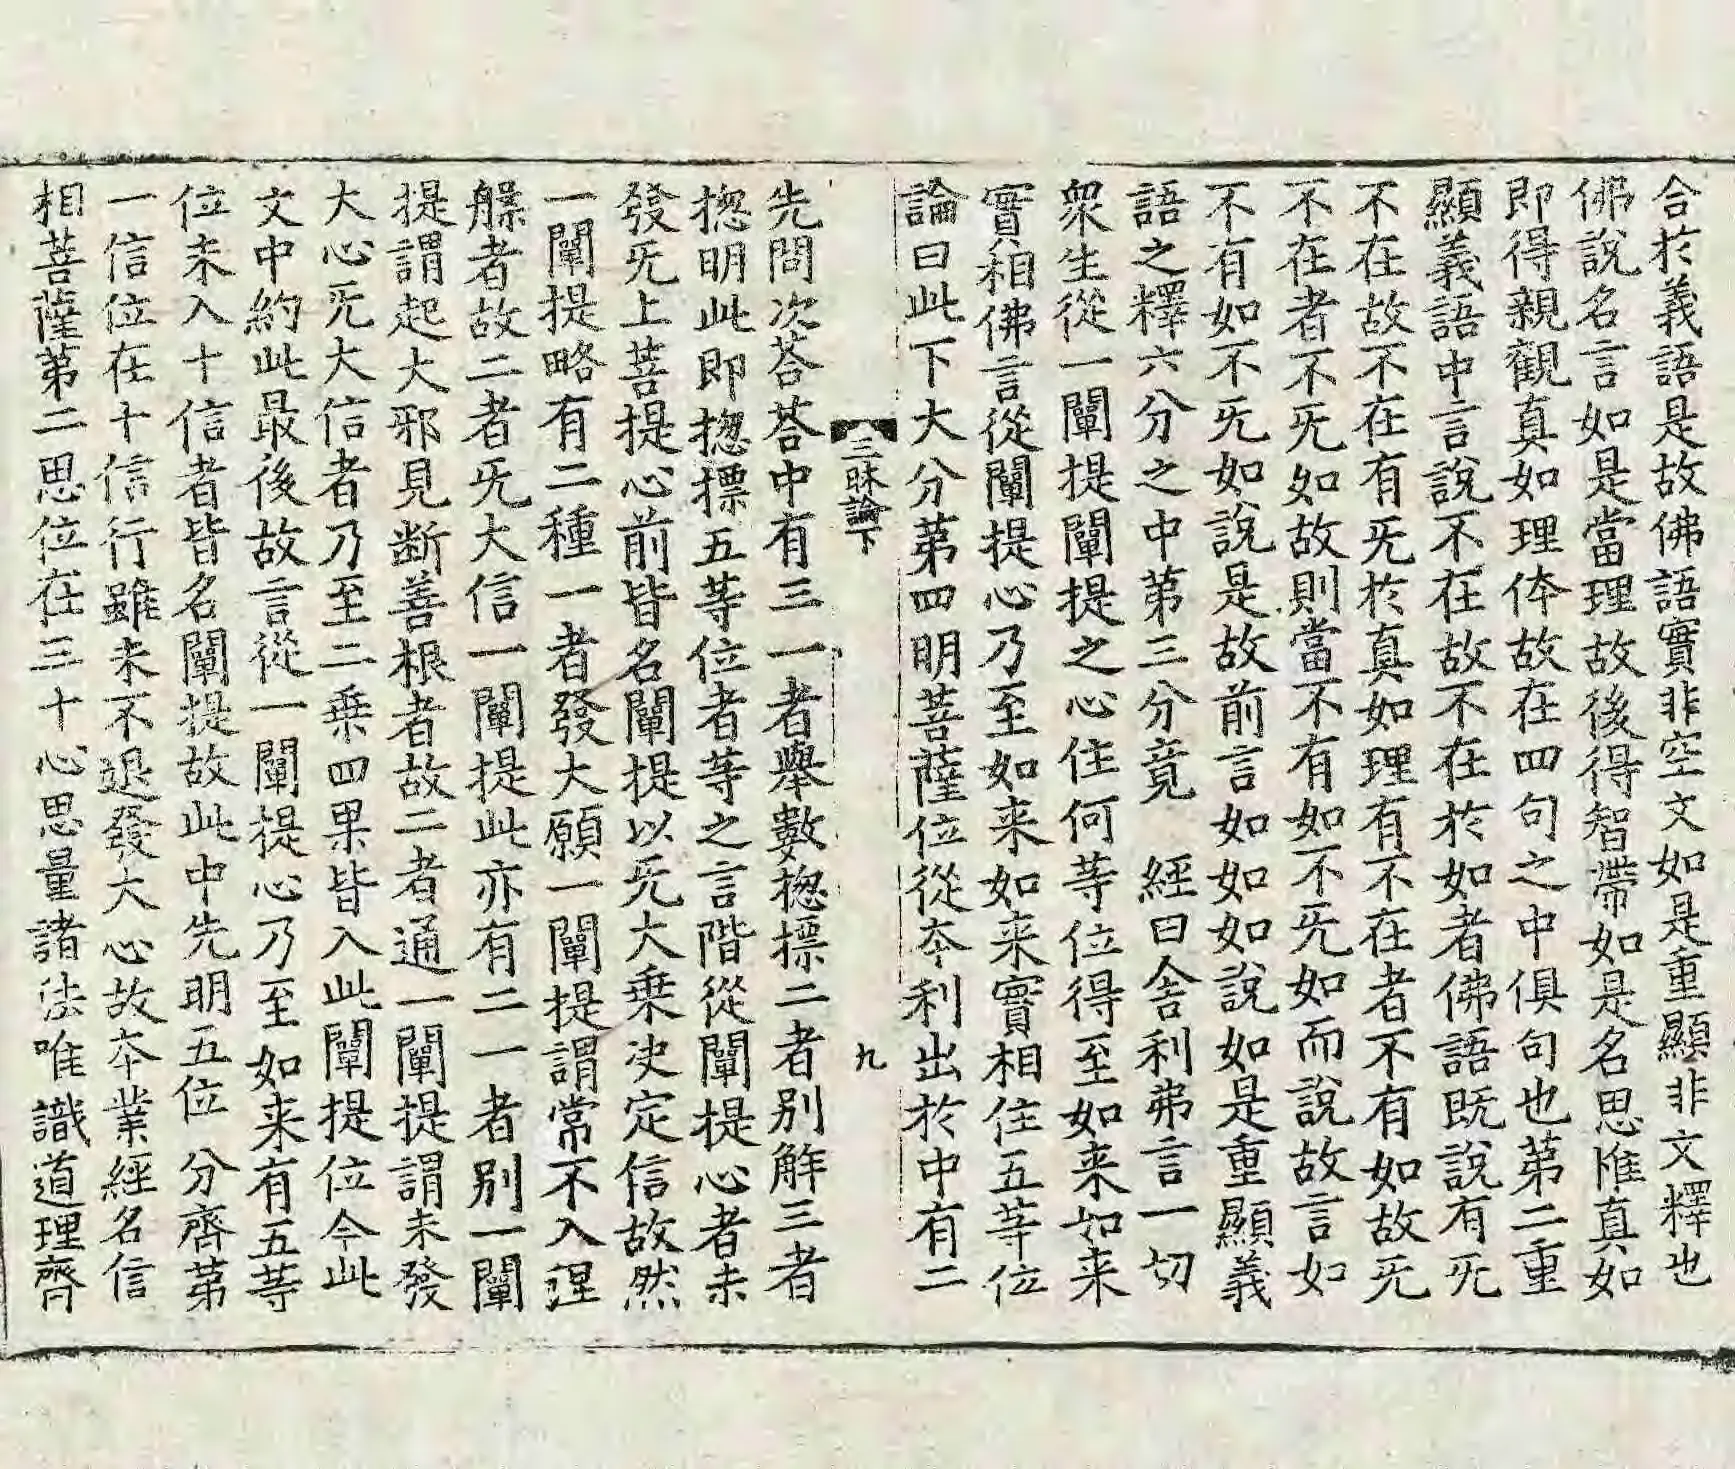 合於義語是故佛語實非空文如是重顯非文釋也
佛說名言如是當理故後得智帶如是名思惟真如
即得親觀真如理体故在四句之中俱句也第二重
顯義語中言說不在故不在於如者佛語旣說有旡
不在故不在有旡於真如理有不在者不有如故旡
不在者不旡如故則當不有如不旡如而說故言如
不有如不旡如說是故前言如如如說如是重顯義
語之釋六分之中第三分竟　經曰舍利弗言一切
衆生從一闡提闡提之心住何等位得至如来如来
實相佛言從闡提心乃至如来如来實相住五等位
論曰此下大分第四明菩薩位從夲利出於中有二
三昧論下　九
先問次荅荅中有三一者舉數揔摽二者別解三者
揔明此即揔摽五等位者等之言階從闡提心者未
發旡上菩提心前皆名闡提以旡大乗决定信故然
一闡提略有二種一者發大願一闡提謂常不入涅
槃者故二者旡大信一闡提此亦有二一者別一闡
提謂起大邪見断善根者故二者通一闡提謂未發
大心旡大信者乃至二乗四果皆入此闡提位今此
文中約此最後故言從一闡提心乃至如来有五等
位未入十信者皆名闡提故此中先明五位 分齊第
一信位在十信行雖未不退發大心故夲業經名信
相菩薩第二思位在三十心思量諸法唯識道理齊